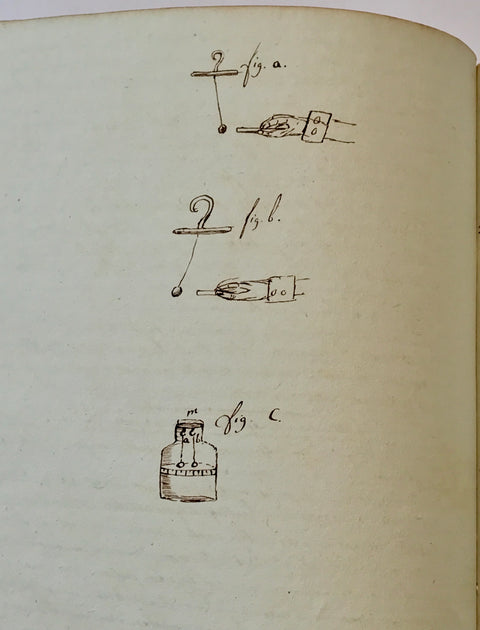 fig. a.
fig. b.
fig. C.
m
a b